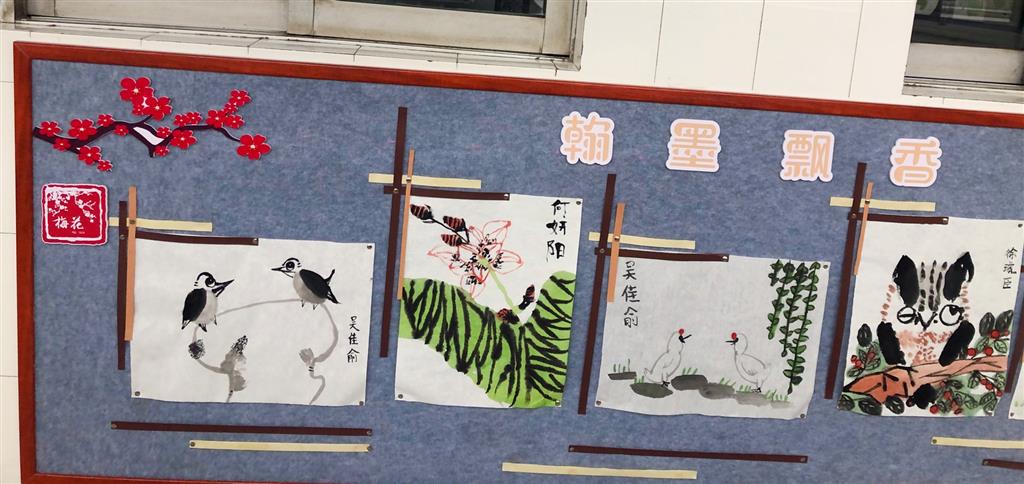 翰墨飘香
梅花
吴佳俞
何妍阳
吴佳俞